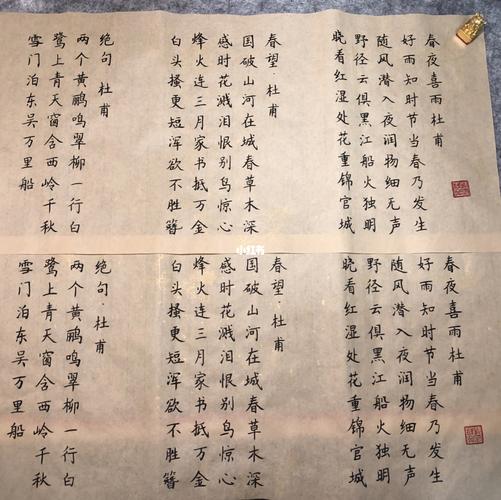 春夜喜雨杜甫
好雨知时节当春乃发生
随风潜入夜润物细无声
野径云俱黑江船火独明
晓看红湿处花重锦官城
春望·杜甫
国破山河在城春草木深
感时花溅泪恨别鸟惊心
烽火连三月家书抵万金
白头搔更短浑欲不胜簪
绝句·杜甫
两个黄鹂鸣翠柳一行白
鹭上青天窗含西岭千秋
雪门泊东吴万里船
小红书
春夜喜雨杜甫
好雨知时节当春乃发生
随风潜入夜润物细无声
野径云俱黑江船火独明
晓看红湿处花重锦官城
春望·杜甫
国破山河在城春草木深
感时花溅泪恨别鸟惊心
烽火连三月家书抵万金
白头搔更短浑欲不胜簪
绝句·杜甫
两个黄鹂鸣翠柳一行白
鹭上青天窗含西岭千秋
雪门泊东吴万里船